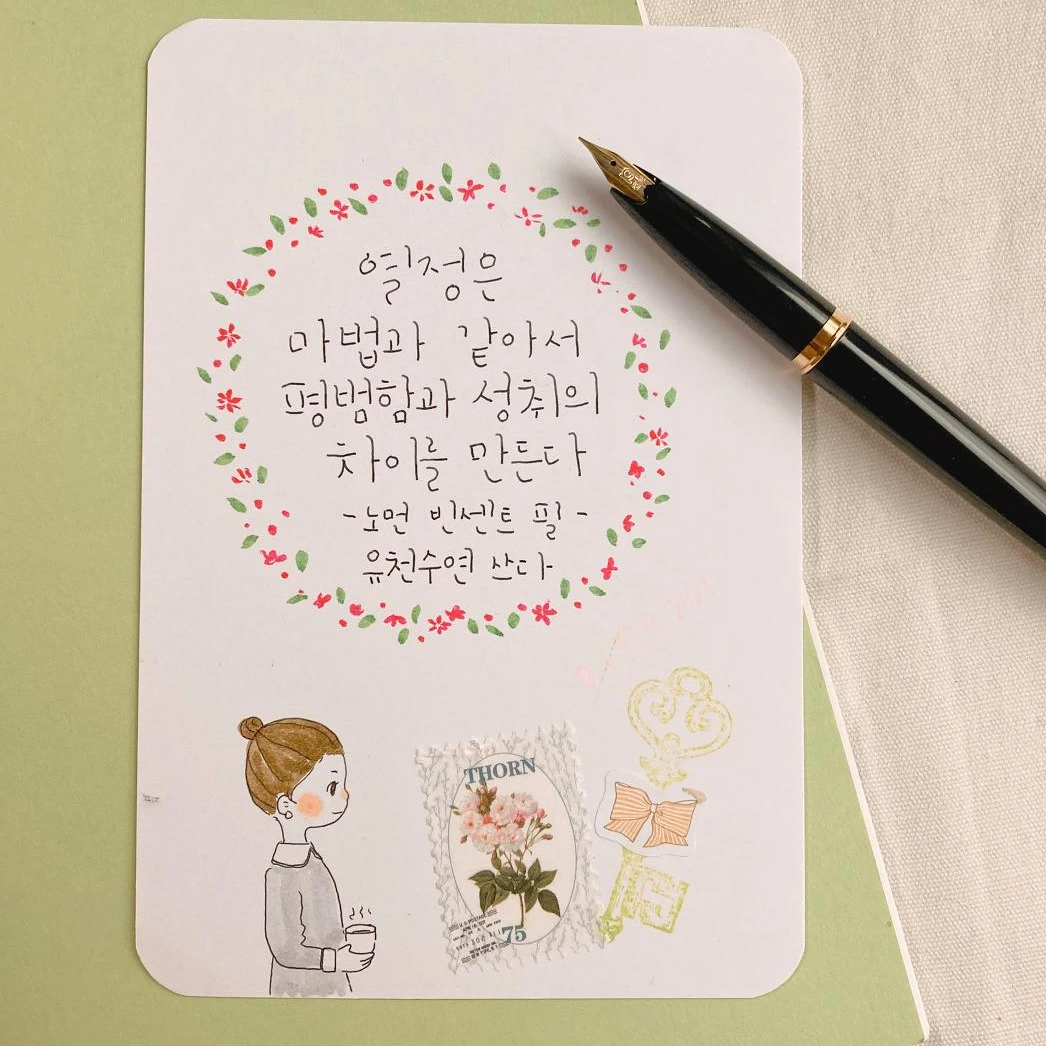 열정은
마법과 같아서
평범함과 성취의
차이를 만든다
-노먼 빈센트 필-
유천수연 쓰다
THORN
75